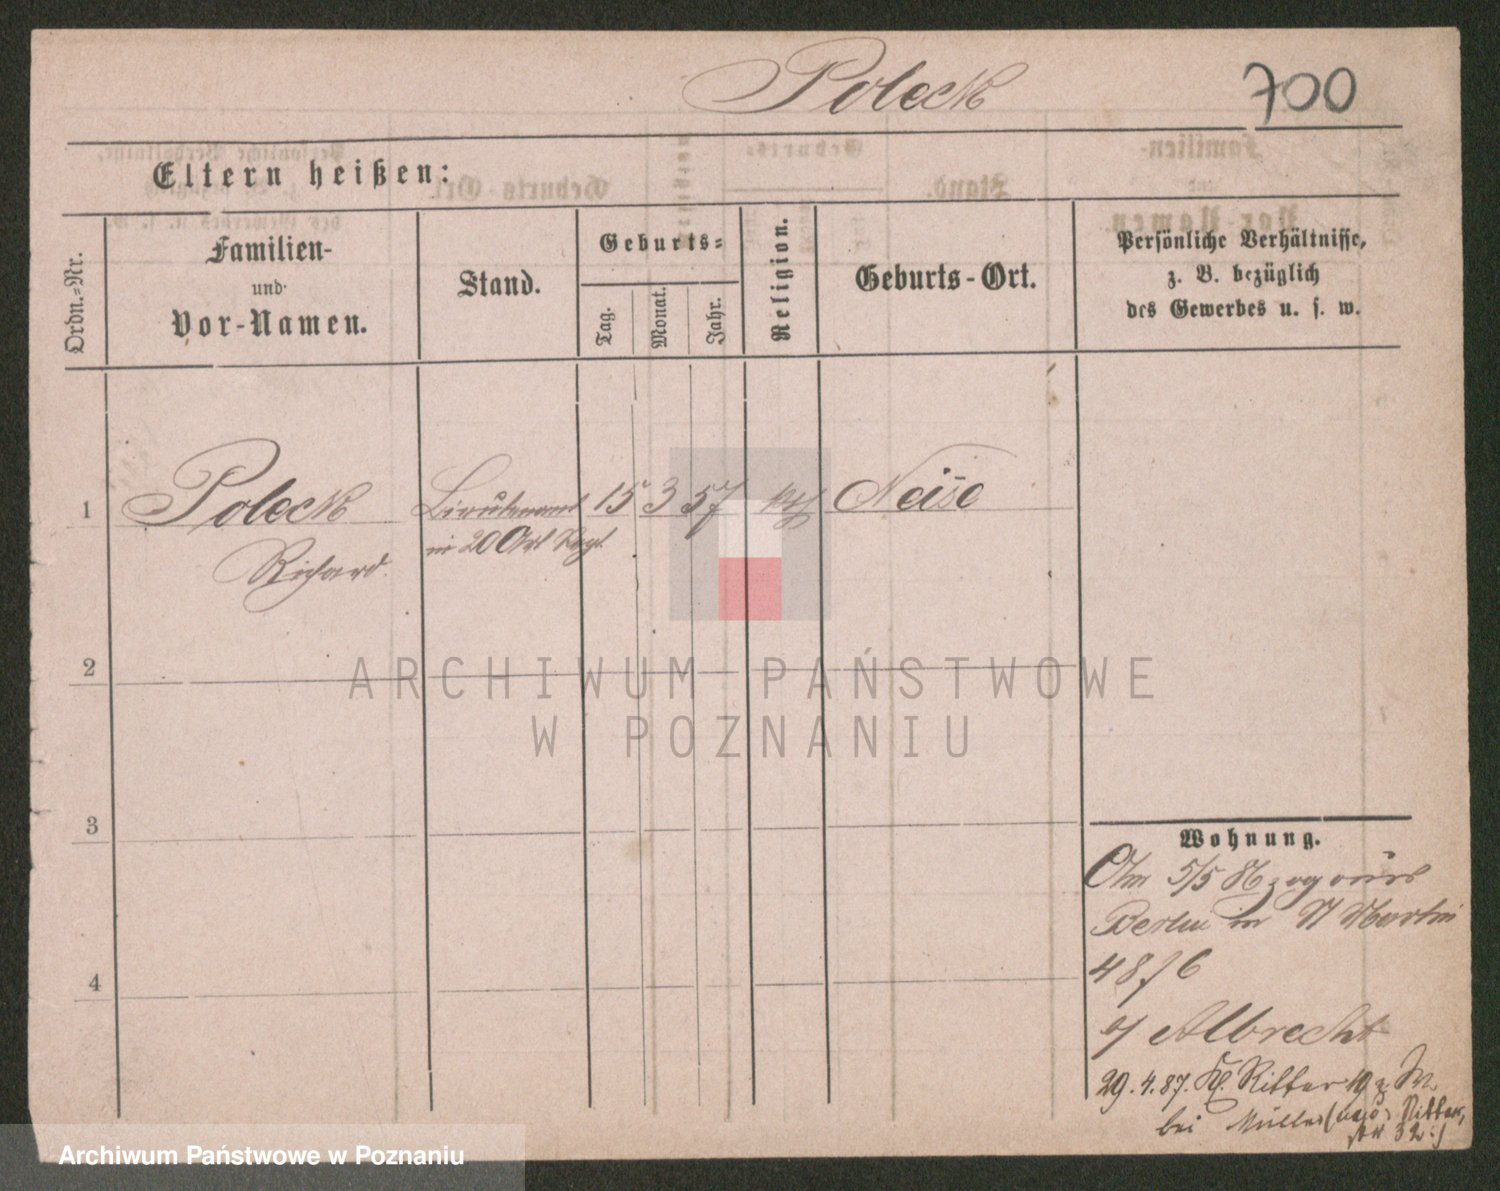 Poleck
700
Eltern heißen:
Ordn.-Nr.
Familien-
und
Vor-Namen.
Stand.
Geburts-
Tag.
Monat.
Jahr.
Religion.
Geburts-Ort.
Persönliche Verhältnisse,
z. B. bezüglich
des Gewerbes u. s. w.
1
Poleck
Richard.
Lieutenant
in 20 Art Regt.
15 3 57
Neisse
2
3
4
ARCHIWUM PAŃSTWOWE
W POZNANIU
Wohnung.
Am 5/5 86 zog aus
Berlin in St Martin
48
b/ Albrecht
29. 4. 87. Kl. Ritter
bei Müller Ritter
32
Archiwum Państwowe w Poznaniu